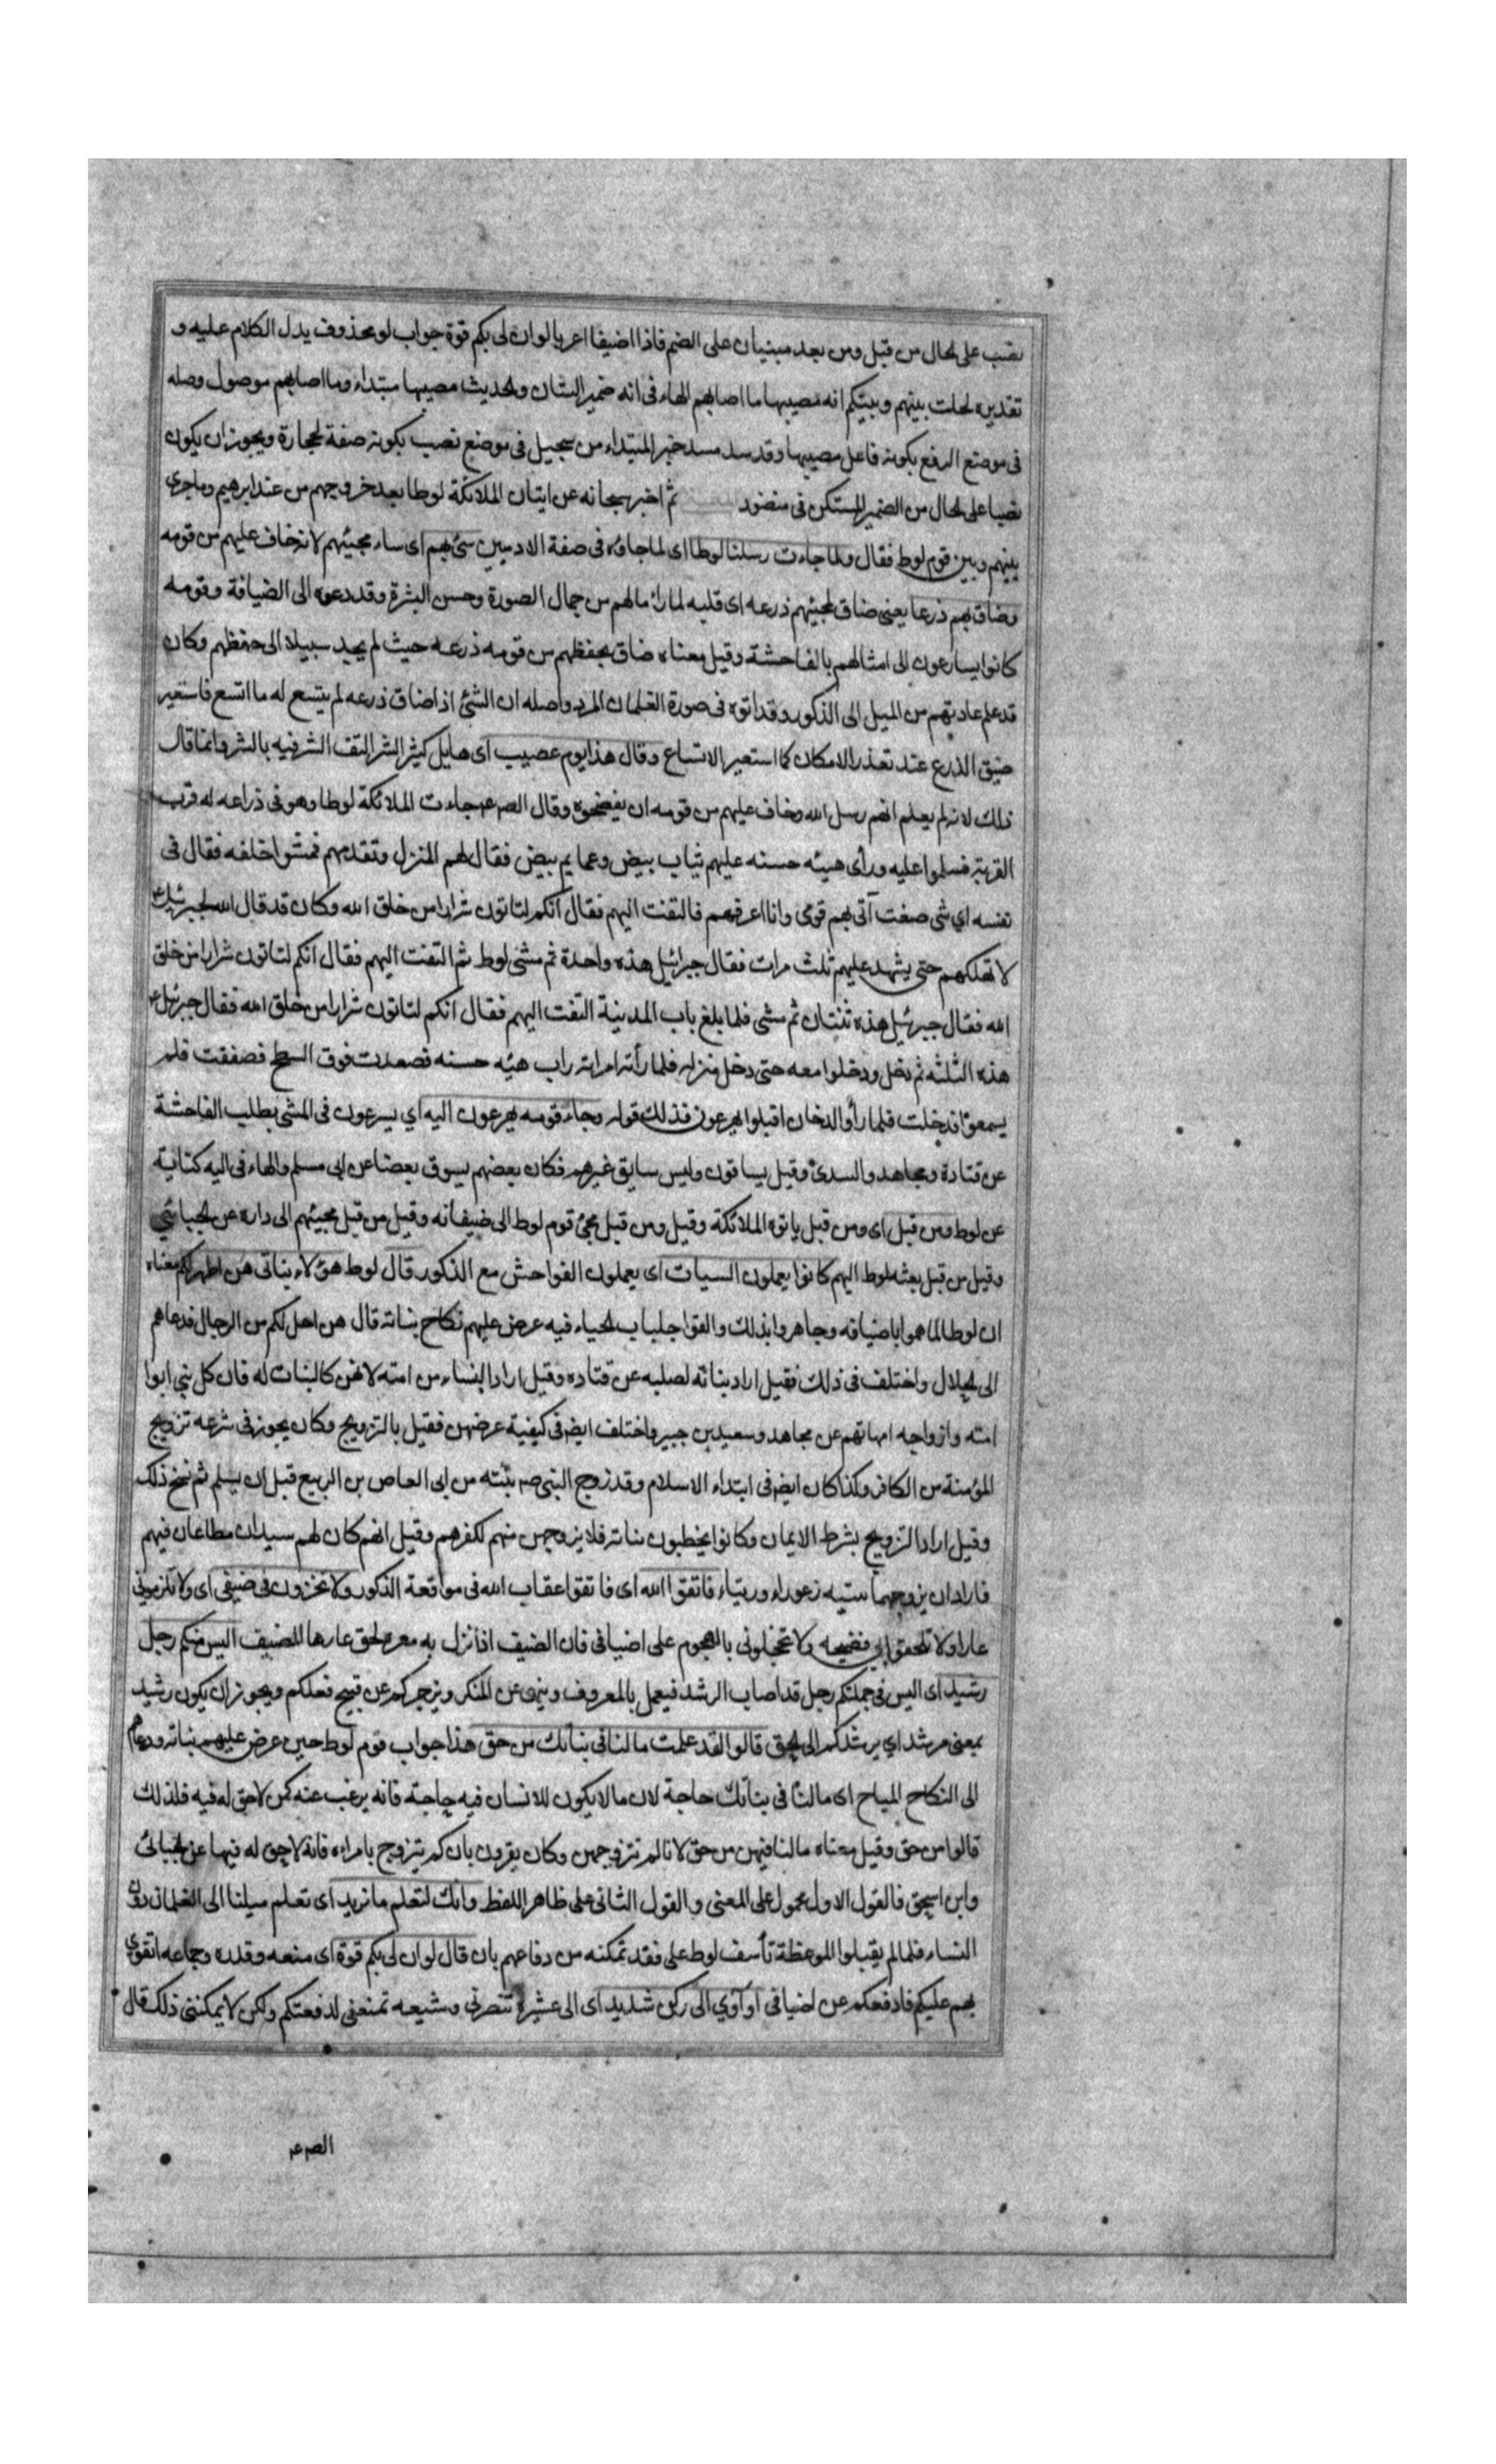 نصب على الحال من قبل ومن بعد مبنيان على الضم فاذا اضيفا اعربا لو ان لى بكم قوة جواب لو محذوف يدل الكلام عليه و
تقديره لحلت بينهم وبينكم انه مصيبها ما اصابهم الهاء فى انه ضمير الشان والحديث مصيبها مبتداء وما اصابهم موصول وصله
فى موضع الرفع بكونه فاعل مصيبها وقد سد مسد خبر المبتداء من سجيل فى موضع نصب بكونه صفة لحجارة ويجوز ان يكون
نصبا على الحال من الضمير المستكن فى منضود ثم اخبر سبحانه عن ايتان الملائكة لوطا بعد خروجهم من عند ابرهيم وما جرى
بينهم وبين قوم لوط فقال ولما جاءت رسلنا لوطا اى لما جاؤه فى صفة الادميين سئ بهم اى ساء مجيئهم لانه خاف عليهم من قومه
وضاق بهم ذرعا يعنى ضاق بمجيئهم ذرعه اى قلبه لما راى مالهم من جمال الصورة وحسن البشرة وقد دعوه الى الضيافة وقومه
كانوا يسارعون الى امثالهم بالفاحشة وقيل معناه ضاق بحفظهم من قومه ذرعه حيث لم يجد سبيلا الى حفظهم وكان
قد علم عادتهم من الميل الى الذكور وقد اتوه فى صورة الغلمان المرد واصله ان الشئ اذا ضاق ذرعه لم يتسع له ما اتسع فاستعير
ضيق الذرع عند تعذر الامكان كما استعير الاتساع وقال هذا يوم عصيب اى هايل كثير الشر التف الشر فيه بالشر وانما قال
ذلك لانه لم يعلم انهم رسل الله وخاف عليهم من قومه ان يفضحوه وقال الصم جاءت الملائكة لوطا وهو فى ذراعه له قرب
القرية فسلموا عليه وراى هيئه حسنه عليهم ثياب بيض وعمايم بيض فقال لهم المنزل وتقدمهم فمشوا خلفه فقال فى
نفسه اي شى صنعت آتى بهم قومى وانا اعرفهم فالتفت اليهم فقال انكم لتاتون شرارا من خلق الله وكان قد قال الله لجبرئيل ع
لا تهلكهم حتى يشهد عليهم ثلث مرات فقال جبرائيل هذه واحدة ثم مشى لوط ثم التفت اليهم فقال انكم لتاتون شرارا من خلق
الله فقال جبرئيل هذه ثنتان ثم مشى فلما بلغ باب المدينة التفت اليهم فقال انكم لتاتون شرارا من خلق الله فقال جبرئيل ع
هذه الثلثه ثم دخل ودخلوا معه حتى دخل منزله فلما رأته امراته راب هيئه حسنه فصعدت فوق السطح فصفقت فلم
يسمعوا فدخنت فلما رأوا الدخان اقبلوا يهرعون فذلك قوله وجاءه قومه يهرعون اليه اي يسرعون فى المشى بطلب الفاحشة
عن قتادة ومجاهد والسدى وقيل يساقون وليس سايق غيرهم فكان بعضهم يسوق بعضا عن ابى مسلم والهاء فى اليه كناية
عن لوط ومن قبل اى ومن قبل ياتوه الملائكة وقيل ومن قبل مجئ قوم لوط الى ضيفانه وقيل من قبل مجيئهم الى داره عن الجبائي
وقيل من قبل بعثه لوط اليهم كانوا يعملون السيات اى يعملون الفواحش مع الذكور قال لوط هؤلاء بناتى هن اطهر لكم معناه
ان لوطا لما هموا باضيافه وجاهروا بذلك والقوا جلباب الحياء فيه عرض عليهم نكاح بناته قال هن احل لكم من الرجال فدعاهم
الى الحلال واختلف فى ذلك فقيل اراد بناته لصلبه عن قتاده وقيل اراد النساء من امته لانهن كالبنات له فان كل نبي ابوا
امته وازواجه امهاتهم عن مجاهد وسعيد بن جبير واختلف ايضا فى كيفية عرضهن فقيل بالتزويج وكان يجوز فى شرعه تزويج
المؤمنة من الكافر وكذا كان ايضا فى ابتداء الاسلام وقد زوج النبى ص بنته من ابى العاص بن الربيع قبل ان يسلم ثم نسخ ذلك
وقيل اراد التزويج بشرط الايمان وكانوا يخطبون بناته فلا يزوجهن منهم لكفرهم وقيل انهم كان لهم سيدان مطاعان فيهم
فاراد ان يزوجهما بنتيه زعوراء وريثاء فاتقوا الله اى فاتقوا عقاب الله فى مواقعة الذكور ولا تخزون فى ضيفى اى ولا تلزمونى
عارا ولا تلحقوا بي فضيحه ولا تخجلونى بالهجوم على اضيافى فان الضيف اذا نزل به معره لحق عارها للمضيف اليس منكم رجل
رشيد اى اليس فى جملتكم رجل قد اصاب الرشد فيعمل بالمعروف وينهى عن المنكر ويزجركم عن قبيح فعلكم ويجوز ان يكون رشيد
بمعنى مرشد اي يرشدكم الى الحق قالوا لقد علمت ما لنا فى بناتك من حق هذا جواب قوم لوط حين عرض عليهم بناته ودعاهم
الى النكاح المباح اى ما لنا فى بناتك حاجة لان ما لا يكون للانسان فيه حاجة فانه يرغب عنه كمن لا حق له فيه فلذلك
قالوا من حق وقيل معناه ما لنا فيهن من حق لانا لم نتزوجهن وكان يقرون بان كم يتزوج بامراه فانه لا حق له فيها عن الجبائى
وابن اسحق فالقول الاول محمول على المعنى والقول الثانى على ظاهر اللفظ وانك لتعلم ما نريد اى تعلم ميلنا الى الغلمان دون
النساء فلما لم يقبلوا الموعظة تأسف لوط على فقد تمكنه من دفاعهم بان قال لو ان لى بكم قوة اى منعه وقدره وجماعه اتقوى
بهم عليكم فادفعكم عن اضيافى او آوي الى ركن شديد اى الى عشيرة تنصرنى وشيعه تمنعنى لدفعتكم ولكن لا يمكننى ذلك قال